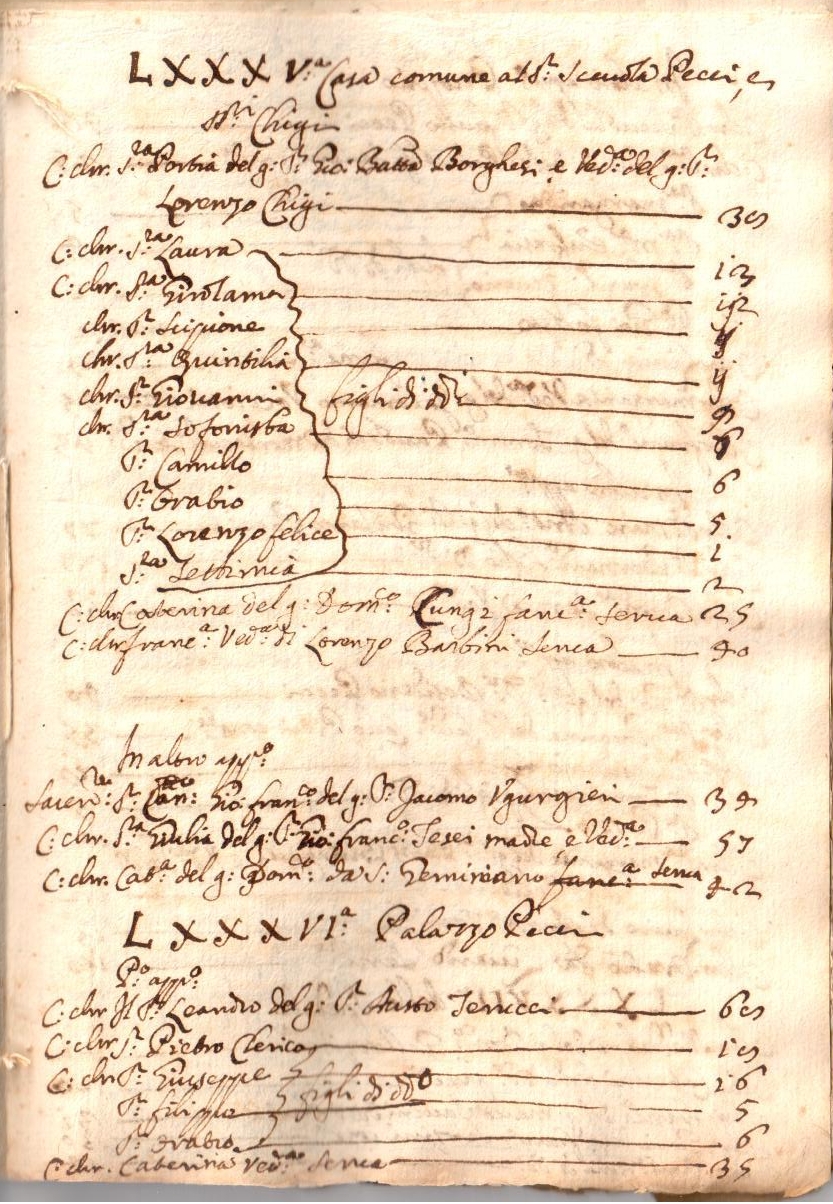 LXXXV.ª Casa comune al S.r Scuola Pecci, e
SS.ri Chigi
C: chr. S.ra Porzia del q: S.r Gio: Batta Borghesi e Ved.ª del q: S.r
Lorenzo Chigi 39
C: chr. S.ra Laura 13
C: chr. S.ra Girolama 12
chr. S.r Scipione
chr. S.ra Quintilia
chr. S.r Giovanni figli di dd.i 9
chr. S.ra Sofonisba
S.r Camillo 6
S.r Orazio 5
S.r Lorenzo felice 1
S.ra Settimia 2
C: chr Caterina del q: Dom.co Lungi fanc.ª serva 25
C: chr franc.ª Ved.ª di Lorenzo Barbini serva 40
In altro app.to
Sacer.te S.r Can: Gio: fran.co del q: S.r Jacomo Vgurgieri 34
C: chr. S.ra Giulia del q: S.r Gio: franc.o Tesei madre e Ved.ª 57
C: chr. Cat.ª del q: Dom.co da S: Gemignano fanc.ª serva 42
LXXXVI.ª Palazzo Pecci
P.o app.to
C: chr Il S.r Leandro del q: S.r Austo 60
C: chr S.r Pietro Cherico 19
C: chr S.r Giuseppe 16
S.r filippo figli di dd.o 5
S.r Orazio 6
C: chr. Caterina Ved.ª serva 35